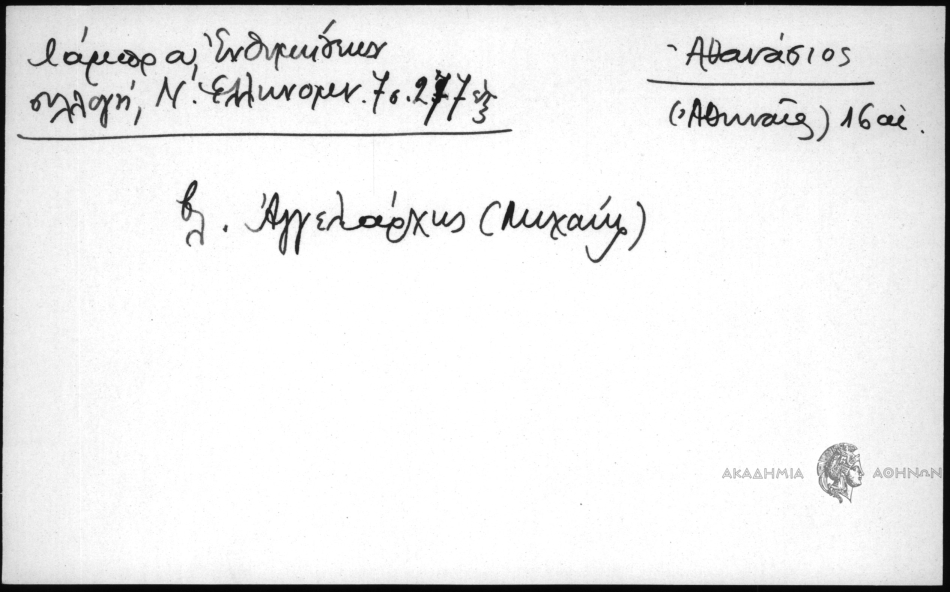 Λάμπρα, Ἐνθυμήσεων
συλλογή, Ν. Ἑλληνομν. 7 σ. 277 ἑξ
Ἀθανάσιος
(Ἀθηναῖος) 16 αἰ.
βλ. Ἀγγελάρχης (Μιχαήλ)
ΑΚΑΔΗΜΙΑ ΑΘΗΝΩΝ